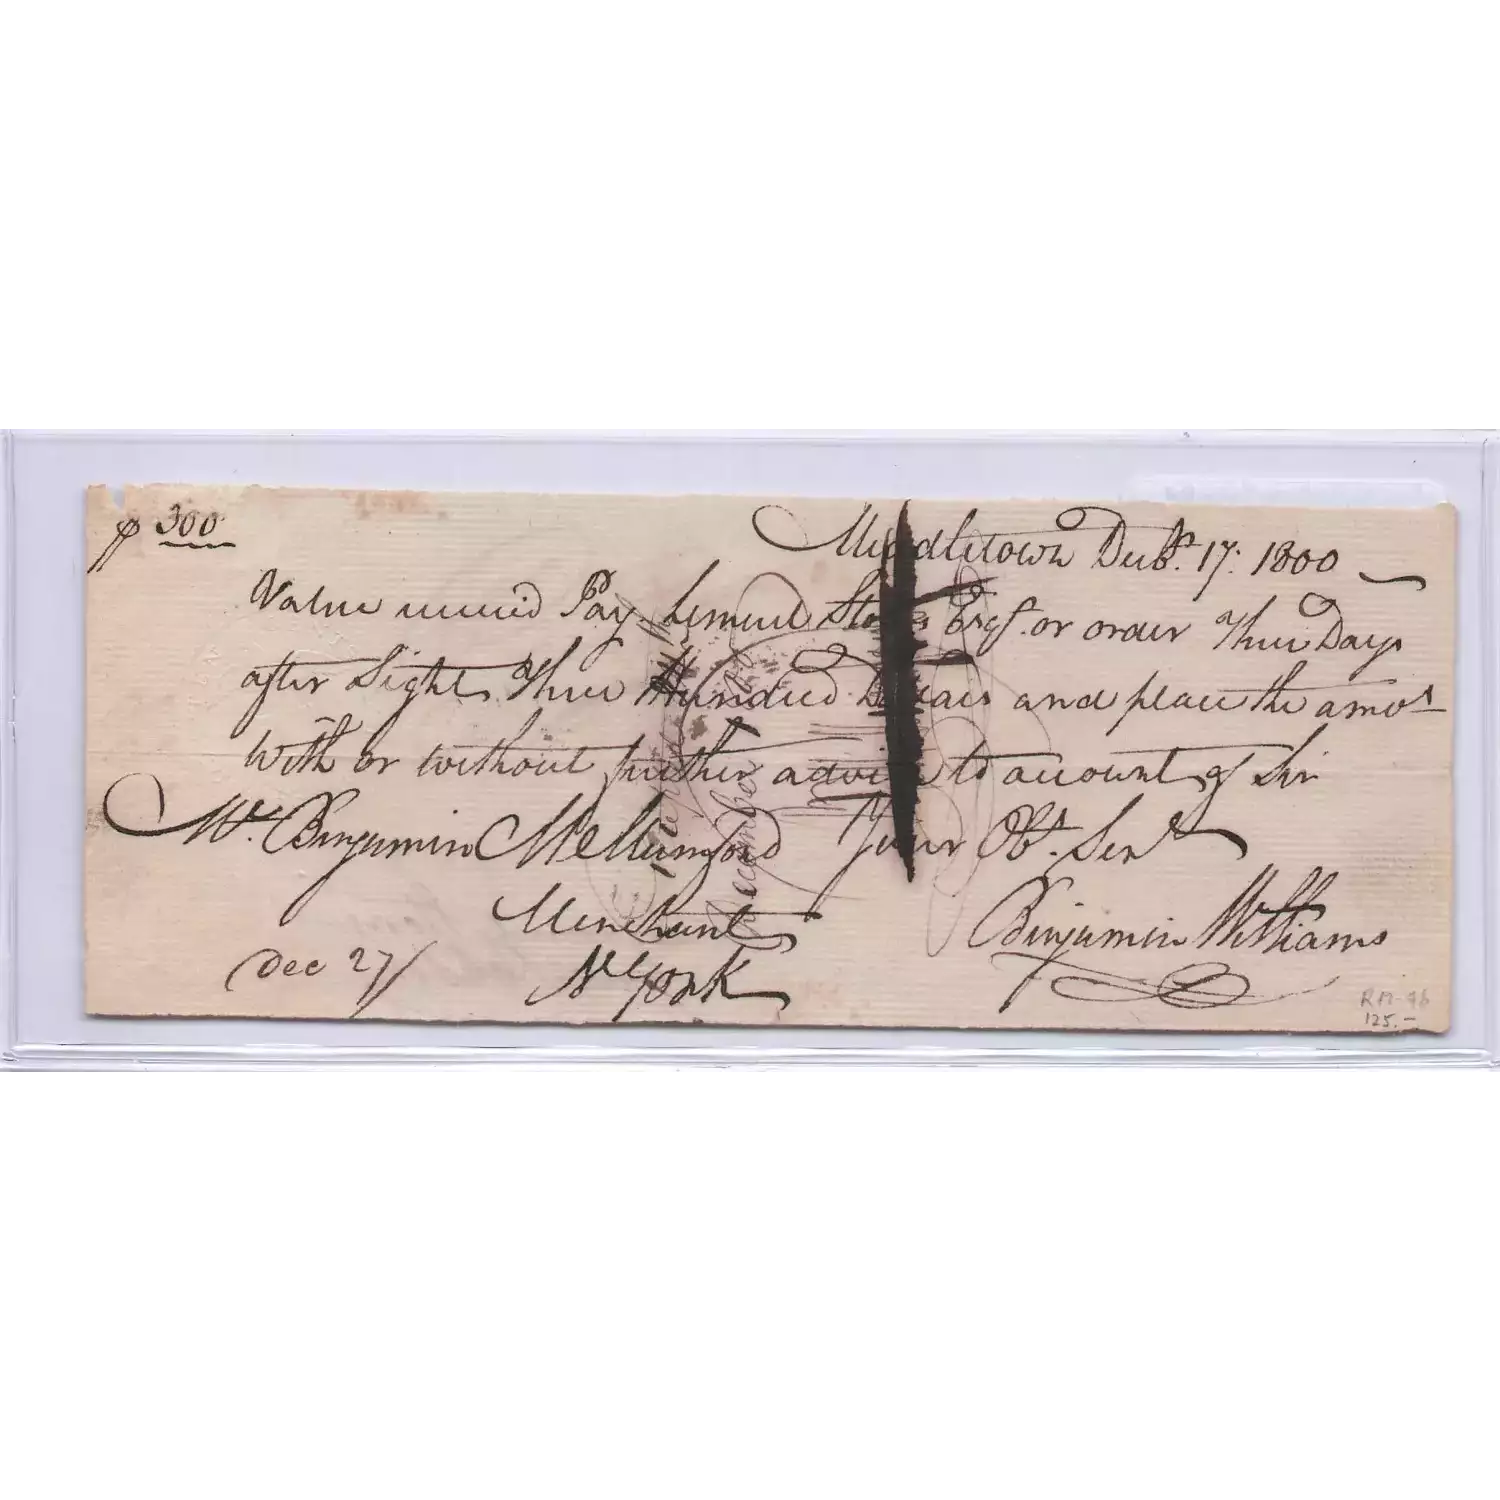 $ 300
Middletown Decbr. 17: 1800
Value receiv'd Pay Lemuel Esqr. or order Three Days
after Sight Three Hundred Dollars and place the amot
With or without further advice to account of Sir
Mr. Benjamin Mumford Your Obt. Servt
Merchant
Benjamin Williams
Dec 27/
N York
accepted
December
RM-96
125.-